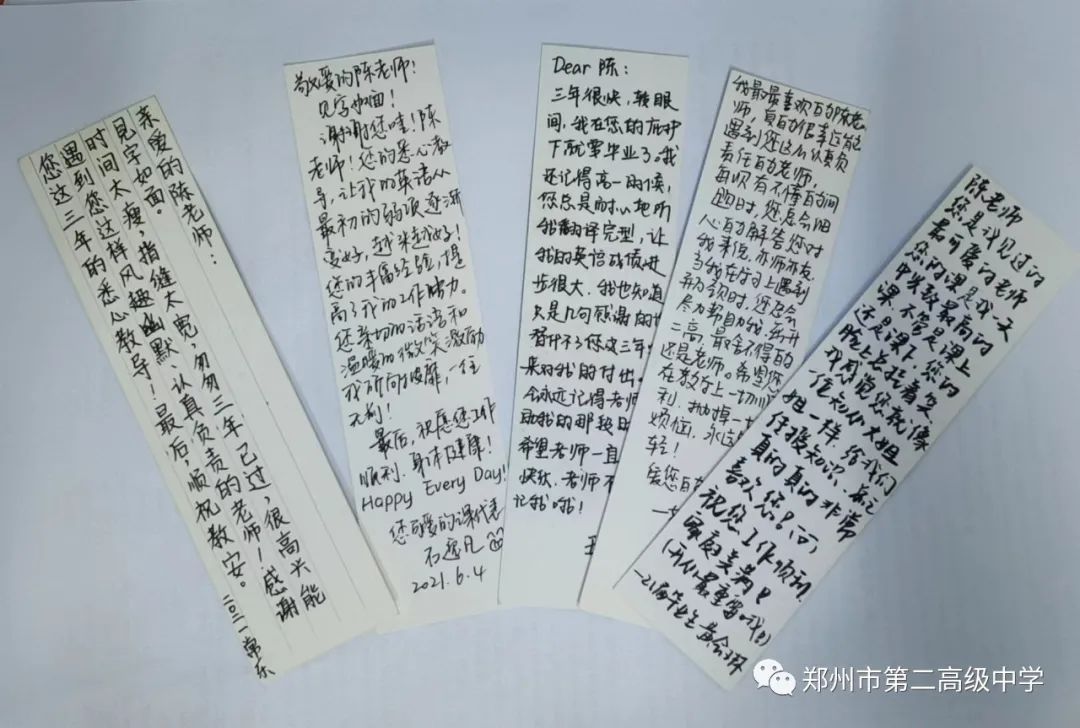 亲爱的陈老师：
见字如面。
时间太瘦，指缝太宽，匆匆三年已过，很高兴能
遇到您这样风趣幽默、认真负责的老师！感谢
您这三年的悉心教导！最后，顺祝教安。
敬爱的陈老师！
见字如面！
谢谢您哇！陈
老师！您的悉心教
导，让我的英语从
最初的弱项逐渐
变好，越来越好！
您的丰富经验，提
高了我的工作能力。
您亲切的话语和
温暖的微笑激励
我所向披靡，一往
无利！
最后，祝愿您工作
顺利，身体健康！
Happy Every Day!
您可爱的课代表
2021.6.4
Dear 陈：
三年很快，转眼
间，我在您的庇护
下就要毕业了。我
还记得高一的时候，
您总是耐心地听
我翻译完型，让
我的英语成绩进
步很大。我也知道
只是几句感谢的
替代不了您这三年
来对我的付出。
会永远记得老师
助我的那段
希望老师一直
快快，老师不
记我哦！
我最最喜欢的陈老
师，真的很幸运能
遇到您这么认真负
责任的老师。
每次有不懂的问
题时，您总会细
心的解答，您对
我来说，亦师亦友，
当我在学习上遇到
困难时，您总会
尽力帮助我，离开
二高，最舍不得的
还是老师。希望您
在教学上一切顺
利，抛掉一切
烦恼，永远
轻！
爱您的
陈老师
您是我见过的
最可爱的老师
您的课是我一天
中兴致最高的
课，不管是课上
还是课下，您的
脸上总挂着笑
我感觉您就像
一位知心大姐
姐一样，给我们
传授知识，总之
真的真的非常
喜欢您！
祝您工作顺利，
家庭美满！
（开心最重要哦！）
—21届毕业生
郑州市第二高级中学